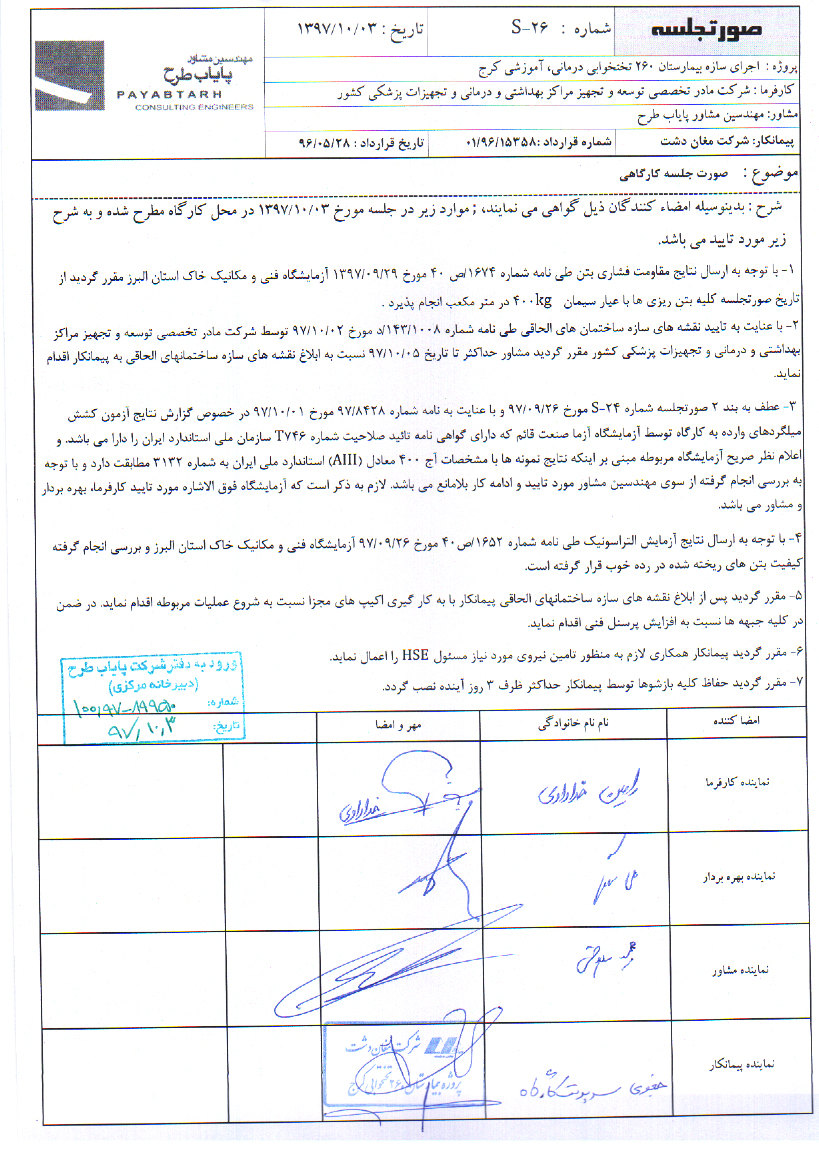 صورتجلسه
شماره : S-۲۶
تاریخ : ۱۳۹۷/۱۰/۰۳
مهندسین مشاور
پایاب طرح
PAYABTARH
CONSULTING ENGINEERS
پروژه : اجرای سازه بیمارستان ۲۶۰ تختخوابی درمانی، آموزشی کرج
کارفرما : شرکت مادر تخصصی توسعه و تجهیز مراکز بهداشتی و درمانی و تجهیزات پزشکی کشور
مشاور: مهندسین مشاور پایاب طرح
پیمانکار: شرکت مغان دشت
شماره قرارداد :۰۱/۹۶/۱۵۳۵۸
تاریخ قرارداد : ۹۶/۰۵/۲۸
موضوع : صورت جلسه کارگاهی
شرح : بدینوسیله امضاء کنندگان ذیل گواهی می نمایند، ; موارد زیر در جلسه مورخ ۱۳۹۷/۱۰/۰۳ در محل کارگاه مطرح شده و به شرح
زیر مورد تایید می باشد.
۱- با توجه به ارسال نتایج مقاومت فشاری بتن طی نامه شماره ۱۶۷۴/ص ۴۰ مورخ ۱۳۹۷/۰۹/۲۹ آزمایشگاه فنی و مکانیک خاک استان البرز مقرر گردید از
تاریخ صورتجلسه کلیه بتن ریزی ها با عیار سیمان ۴۰۰kg در متر مکعب انجام پذیرد .
۲- با عنایت به تایید نقشه های سازه ساختمان های الحاقی طی نامه شماره ۱۴۳/۱۰۰۸/د مورخ ۹۷/۱۰/۰۲ توسط شرکت مادر تخصصی توسعه و تجهیز مراکز
بهداشتی و درمانی و تجهیزات پزشکی کشور مقرر گردید مشاور حداکثر تا تاریخ ۹۷/۱۰/۰۵ نسبت به ابلاغ نقشه های سازه ساختمانهای الحاقی به پیمانکار اقدام
نماید.
۳- عطف به بند ۲ صورتجلسه شماره S-۲۴ مورخ ۹۷/۰۹/۲۶ و با عنایت به نامه شماره ۹۷/۸۴۲۸ مورخ ۹۷/۱۰/۰۱ در خصوص گزارش نتایج آزمون کشش
میلگردهای وارده به کارگاه توسط آزمایشگاه آزما صنعت قائم که دارای گواهی نامه تائید صلاحیت شماره T۷۴۶ سازمان ملی استاندارد ایران را دارا می باشد. و
اعلام نظر صریح آزمایشگاه مربوطه مبنی بر اینکه نتایج نمونه ها با مشخصات آج ۴۰۰ معادل (AIII) استاندارد ملی ایران به شماره ۳۱۳۲ مطابقت دارد و با توجه
به بررسی انجام گرفته از سوی مهندسین مشاور مورد تایید و ادامه کار بلامانع می باشد. لازم به ذکر است که آزمایشگاه فوق الاشاره مورد تایید کارفرما، بهره بردار
و مشاور می باشد.
۴- با توجه به ارسال نتایج آزمایش التراسونیک طی نامه شماره ۱۶۵۲/ص۴۰ مورخ ۹۷/۰۹/۲۶ آزمایشگاه فنی و مکانیک خاک استان البرز و بررسی انجام گرفته
کیفیت بتن های ریخته شده در رده خوب قرار گرفته است.
۵- مقرر گردید پس از ابلاغ نقشه های سازه ساختمانهای الحاقی پیمانکار با به کار گیری اکیپ های مجزا نسبت به شروع عملیات مربوطه اقدام نماید. در ضمن
در کلیه جبهه ها نسبت به افزایش پرسنل فنی اقدام نماید.
۶- مقرر گردید پیمانکار همکاری لازم به منظور تامین نیروی مورد نیاز مسئول HSE را اعمال نماید.
۷- مقرر گردید حفاظ کلیه بازشوها توسط پیمانکار حداکثر ظرف ۳ روز آینده نصب گردد.
ورود به دفتر شرکت پایاب طرح
(دبیرخانه مرکزی)
شماره:
تاریخ: ۹۷/۱۰/۳
امضا کننده
نام نام خانوادگی
مهر و امضا
نماینده کارفرما
رامین خدادادی
خدادادی
نماینده بهره بردار
نماینده مشاور
نماینده پیمانکار
جعفری سرپرست کارگاه
شرکت مغان دشت
پروژه بیمارستان ۲۶۰ تختخوابی کرج